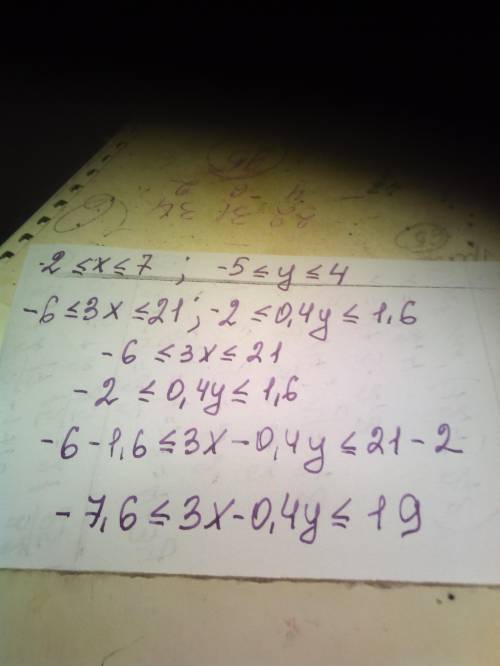 -2 ≤ x ≤ 7 ; -5 ≤ y ≤ 4
-6 ≤ 3x ≤ 21 ; -2 ≤ 0,4y ≤ 1,6
-6 ≤ 3x ≤ 21
-2 ≤ 0,4y ≤ 1,6
-6-1,6 ≤ 3x-0,4y ≤ 21-2
-7,6 ≤ 3x-0,4y ≤ 19